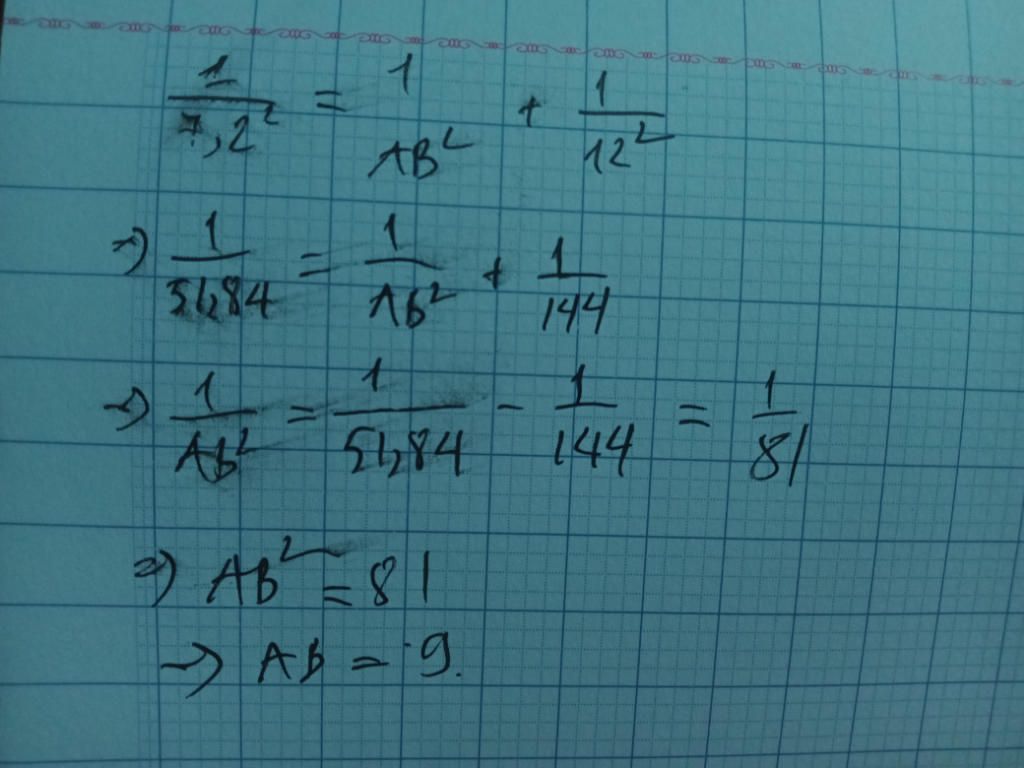 1/7,2² = 1/AB² + 1/12²
=> 1/51,84 = 1/AB² + 1/144
=> 1/AB² = 1/51,84 - 1/144 = 1/81
=> AB² = 81
-> AB = 9.